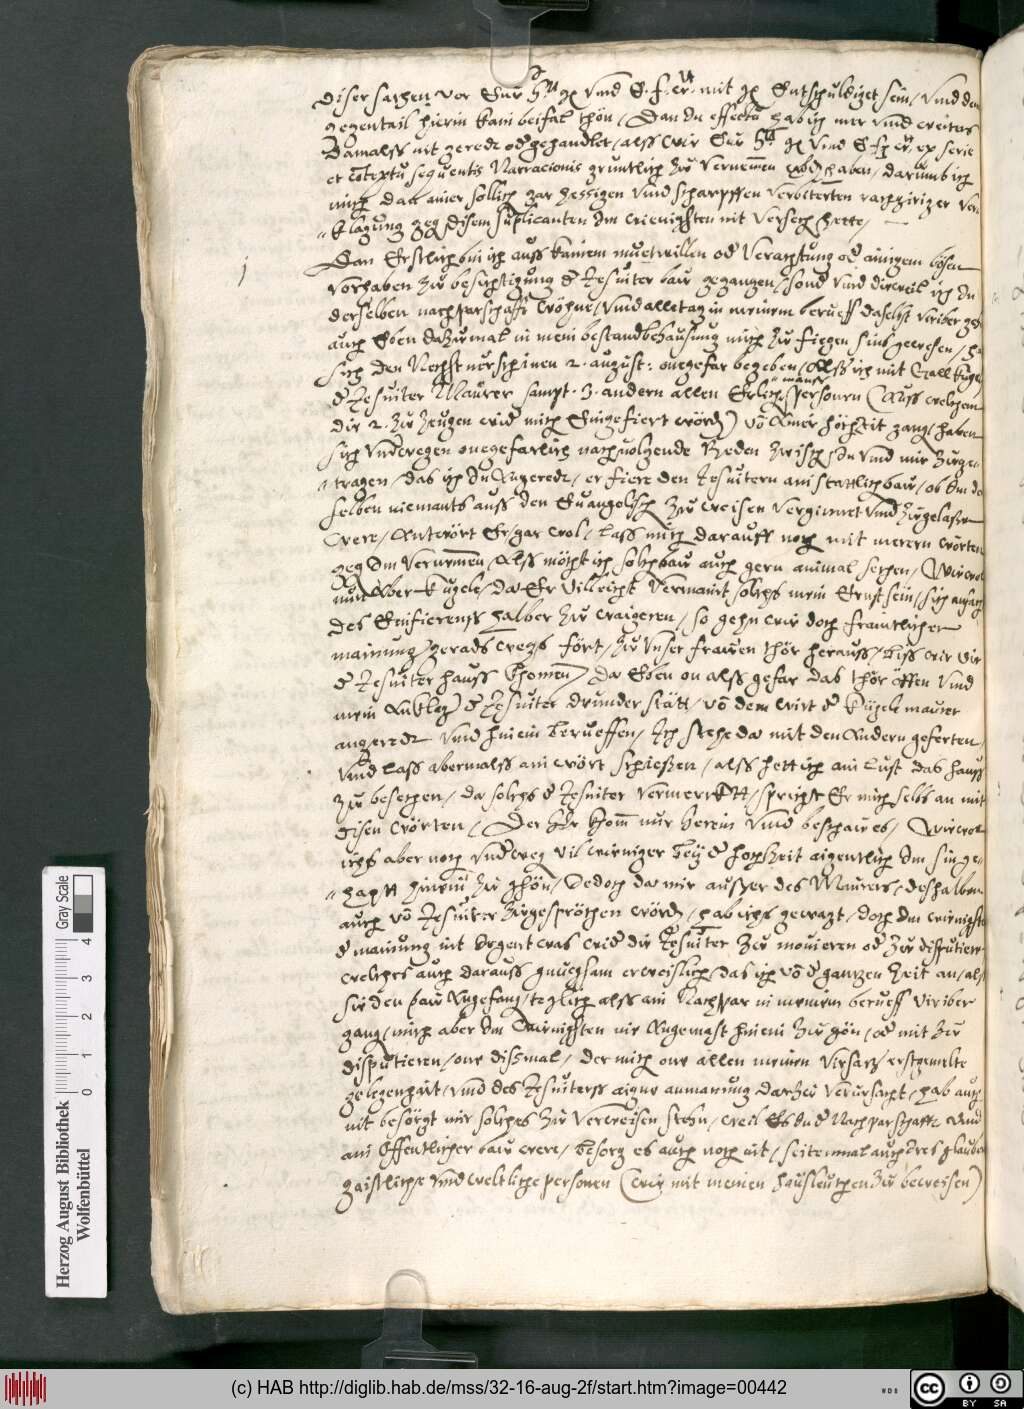 diser sachen vor Eur h: gn vnd E. f. er. mit gn Entschuldiget sein, vnd dem
gegentail hierin kain beifal thon, Dan In effectu hab ich mer vnd weiters
Damalss nit geredt od gehandlet, alss wir Eur h: gn vnd E f er ex serie
et contextu sequentis Narracionis gruntlich zu vernemen haben, darumb ich
mich dan ainer sollich gar hessigen vnd scharpffen verbitterten rachgiriger ver-
klagung geg disem suplicanten Im wenigsten nit versech hette,
j
Dan Erstlich bin ich auss kainem muetwillen od verachtung od ainigem bösen
vorhaben zu besichtigung d Jesuiter bau gegangen, sond vnd dieweil ich In
derselben nachparschafft wohne, vnd alletag in meinem berueff daselbst viriber gehe
auch Eben dazumal in mein bestandbehausung mich zu fiegen sins gewesen, hat
sich den Nechst verschinen 2. august: onegefar begeben, Alss ich mit Gall Kugele
d Jesuiter Maurer sampt. 3. andern allen Erlichen manss personen (Auss welchem
die 2. zu zeugen wid mich Eingefiert word) vō Ainer hochzeit gang, haben
sich vnderwegen onegefarlich nachuolgende Reden zwisch Im vnd mir zuge-
tragen, das ich In Angeredt, er fiere den Jesuitern ain stattlich bau, ob Im der
selben niemants auss den Euangelisch zu weisen vergunnet vnd zugelassen
Were, Antwort Er, gar wol, lass mich darauff noch mit merern worten
geg Im vernemen, Alss möcht ich solch bau auch gern ainmal sechen, Wiewol
nun Aber Kugele, da Er villeicht vermaint solchs mein Ernst sein, sich anfang
des Einfierens halber zu waigeren, so gehn wir doch freintlicher
mainung gerads wegs fort, zu vnser frawen thor herauss, biss wir vir
d Jesuiter hauss khomen, da Eben on alss gefar das thor offen vnd
mein Ankleg d Jesuiter drunder statt, vō dem wirt d Kugele maurer
angeredt vnd hinein berueffen, Ich stehe da mit den Andern geferten,
vnd lass abermalss ain wort schiessen, alss hett ich ain lust das hauss
zu besechen, da solchs d Jesuiter vermerckt, spricht Er mich selbs an mit
disen worten, Der Er khom nur herein vnd beschaw es, Wiewol
ichs aber noch vnderweg vil weniger bey d hochzeit aigentlich Im sin ge-
hapt hinein zu gehn, Jedoch da mir ausser des Maurers, deshalben
auch vō Jesuiter zugesprochen word, hab ichs gewagt, doch Im wenigsten
d mainung nit Irgent was wid die Jesuiter zu mouieren od zu disputieren
welches auch darauss gnuegsam erweislich, das ich vō d gantzen zeit an, als
sie den bau Angefang, teglich alss ain Nachpar in meinem berueff viriber
gang, mich aber Im wenigsten nie Angemast hinein zu gon, od mit zu
disputieren, one dissmal, der mich one allen meinen virsatz erstgemelte
gelegenhait, vnd des Jesuiterss aigne anmanung darzu verursacht, hab auch
nit besorgt mir solches zu verweisen stehn, weil Es In d Nachparschafft Auch
ain öffentlicher bau were, besorg es auch noch nit, seitenmal auch Ires glauben
gaistliche vnd weltliche personen (wie mit meinen hausleuthen zu beweisen)
Herzog August Bibliothek
Wolfenbüttel
0 1 2 3 4
Gray Scale
(c) HAB http://diglib.hab.de/mss/32-16-aug-2f/start.htm?image=00442
WDB
cc
BY SA